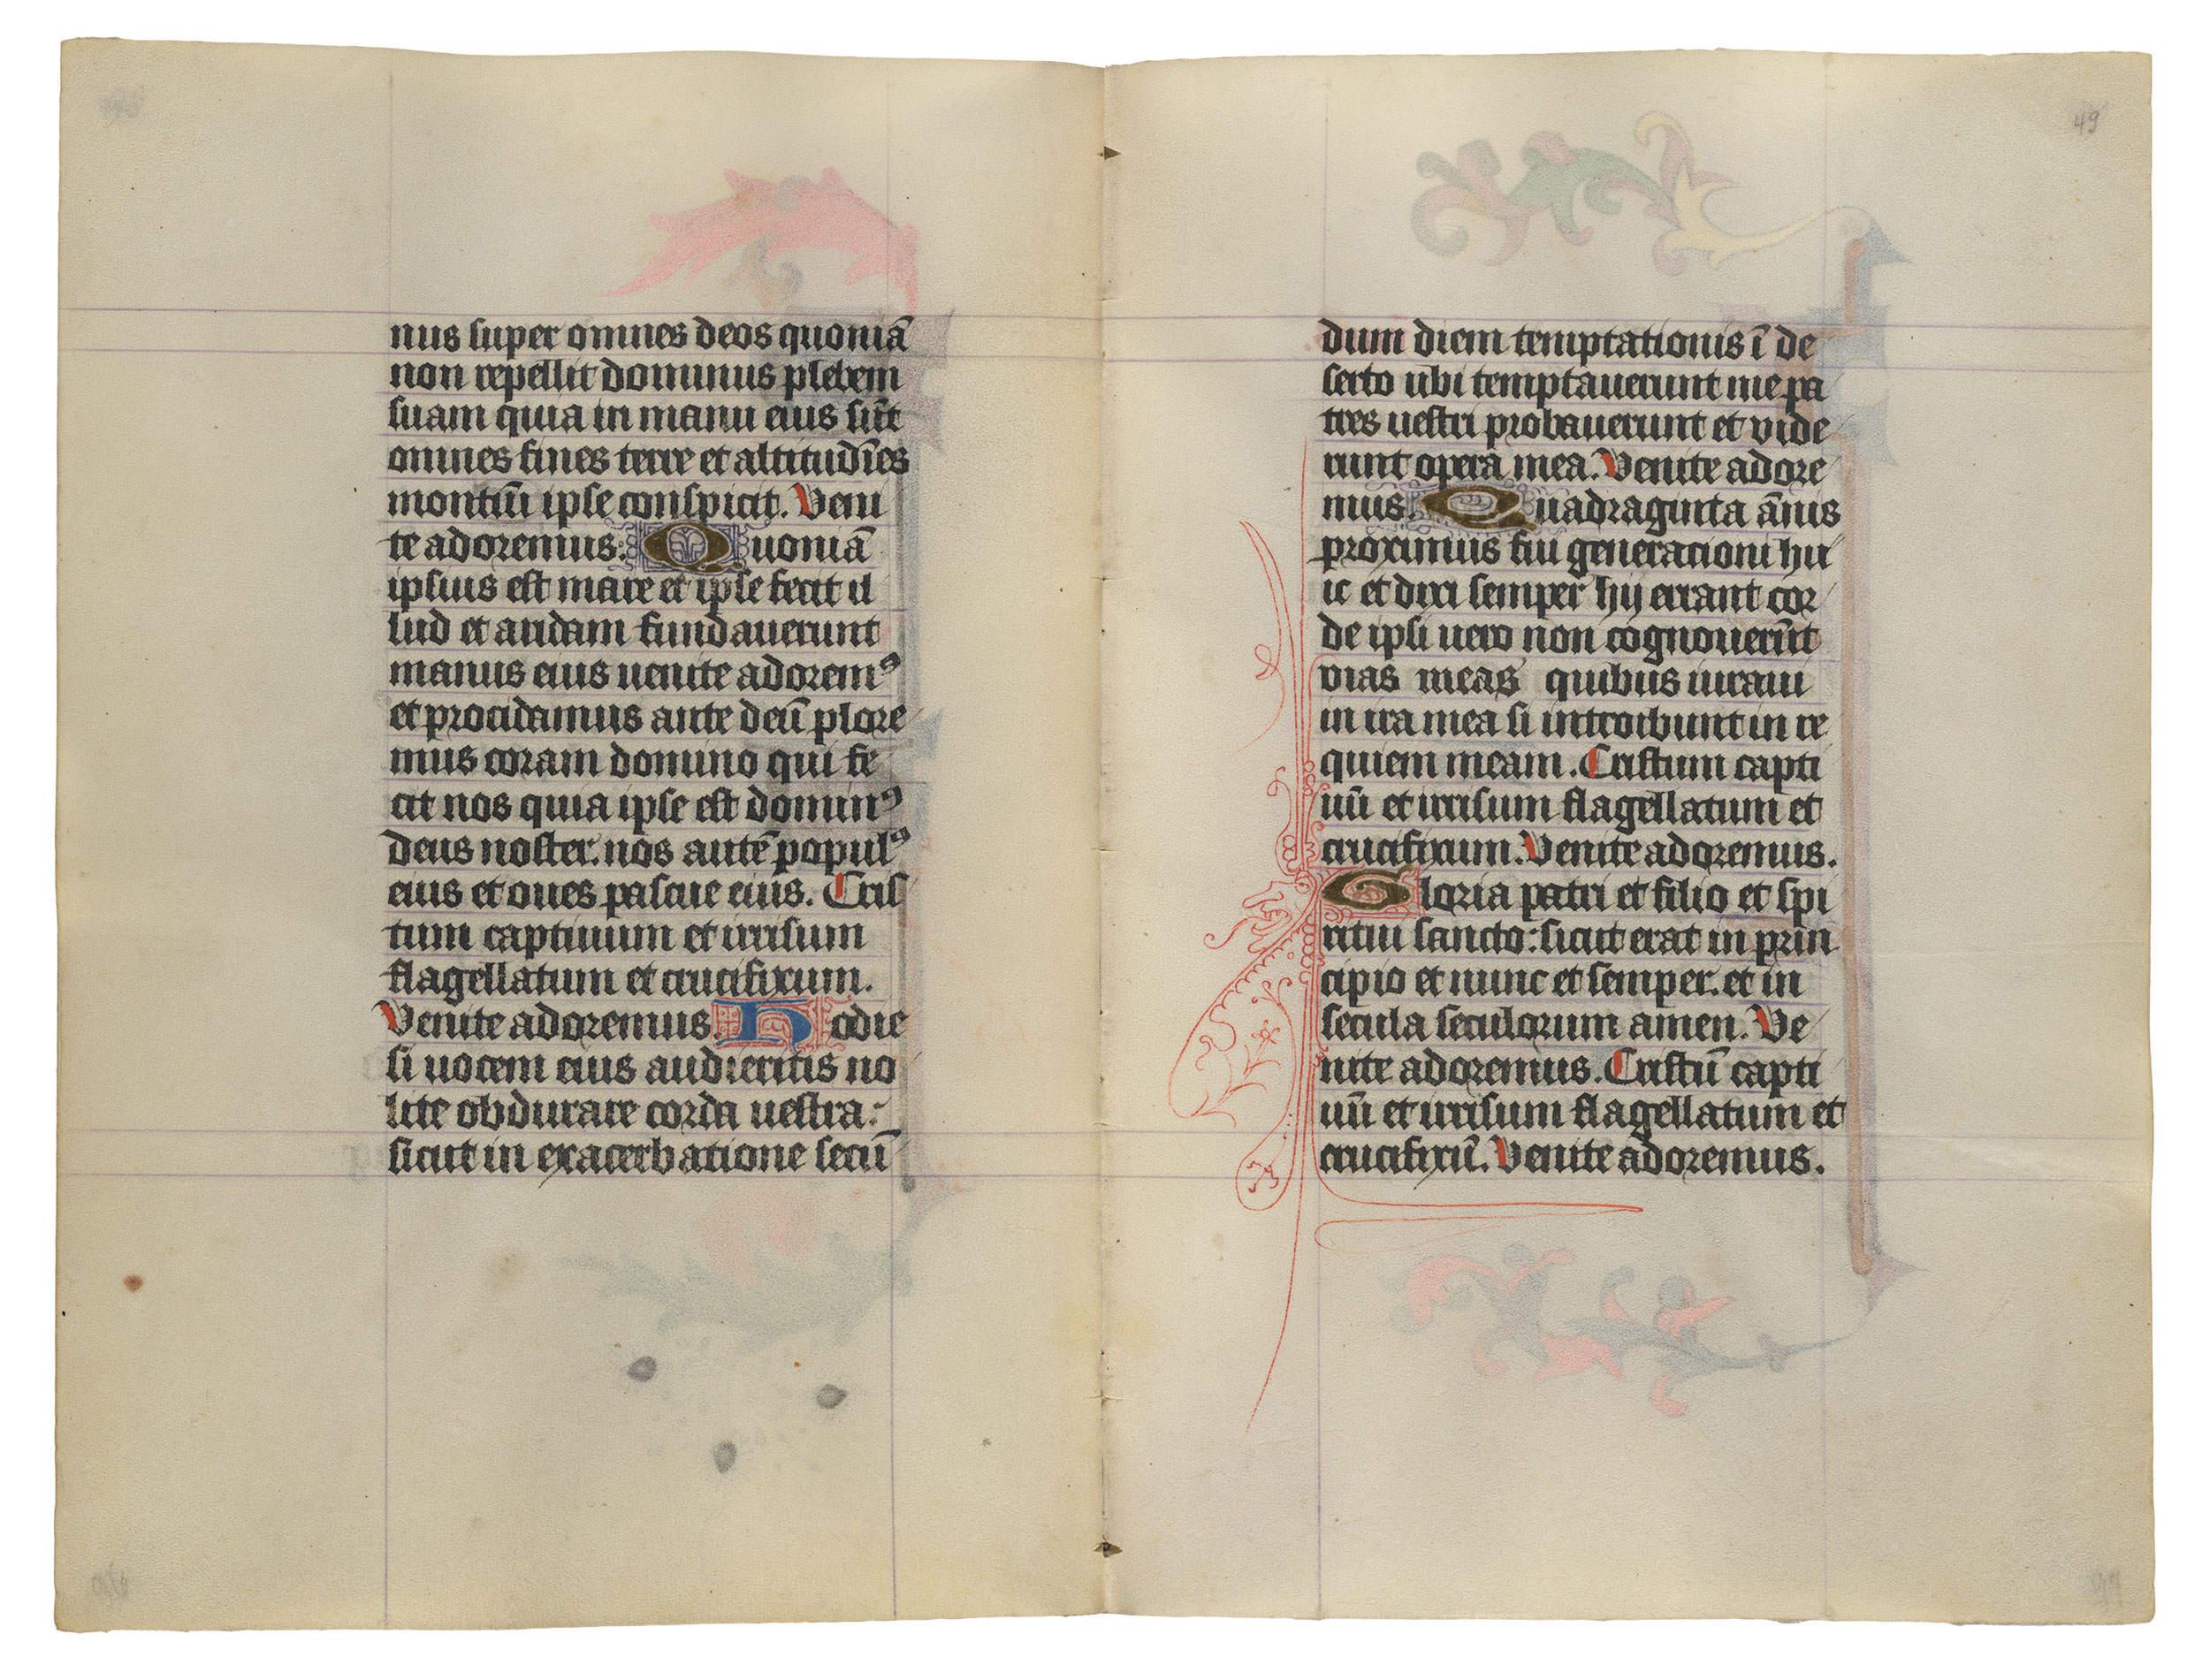 nus super omnes deos quoniā
non repellit dominus plebem
suam quia in manu eius sūt
omnes fines terre et altitudīes
montiū ipse conspicit. Veni
te adoremus. Quoniā
ipsius est mare et ipse fecit il
lud et aridam fundauerunt
manus eius uenite adoremꝰ
et procidamus ante deū plore
mus coram domino qui fe
cit nos quia ipse est dominꝰ
deus noster. nos autē populꝰ
eius et oues pascue eius. Cris
tum captiuum et irrisum
flagellatum et crucifixum.
Venite adoremus. Hodie
si uocem eius audieritis no
lite obdurare corda uestra:
sicut in exacerbatione secū
49
dum diem temptationis ī de
serto ubi temptauerunt me pa
tres uestri probauerunt et vide
runt opera mea. Venite adore
mus. Quadraginta ānis
proximus fui generationi hu
ic et dixi semper hij errant cor
de ipsi uero non cognouerūt
vias meas quibus iuraui
in ira mea si introibunt in re
quiem meam. Cristum capti
uū et irrisum flagellatum et
crucifixum. Venite adoremus.
Gloria patri et filio et spi
ritui sancto: sicut erat in prin
cipio et nunc et semper. et in
secula seculorum amen. Ve
nite adoremus. Cristū capti
uū et irrisum flagellatum et
crucifixū. Venite adoremus.